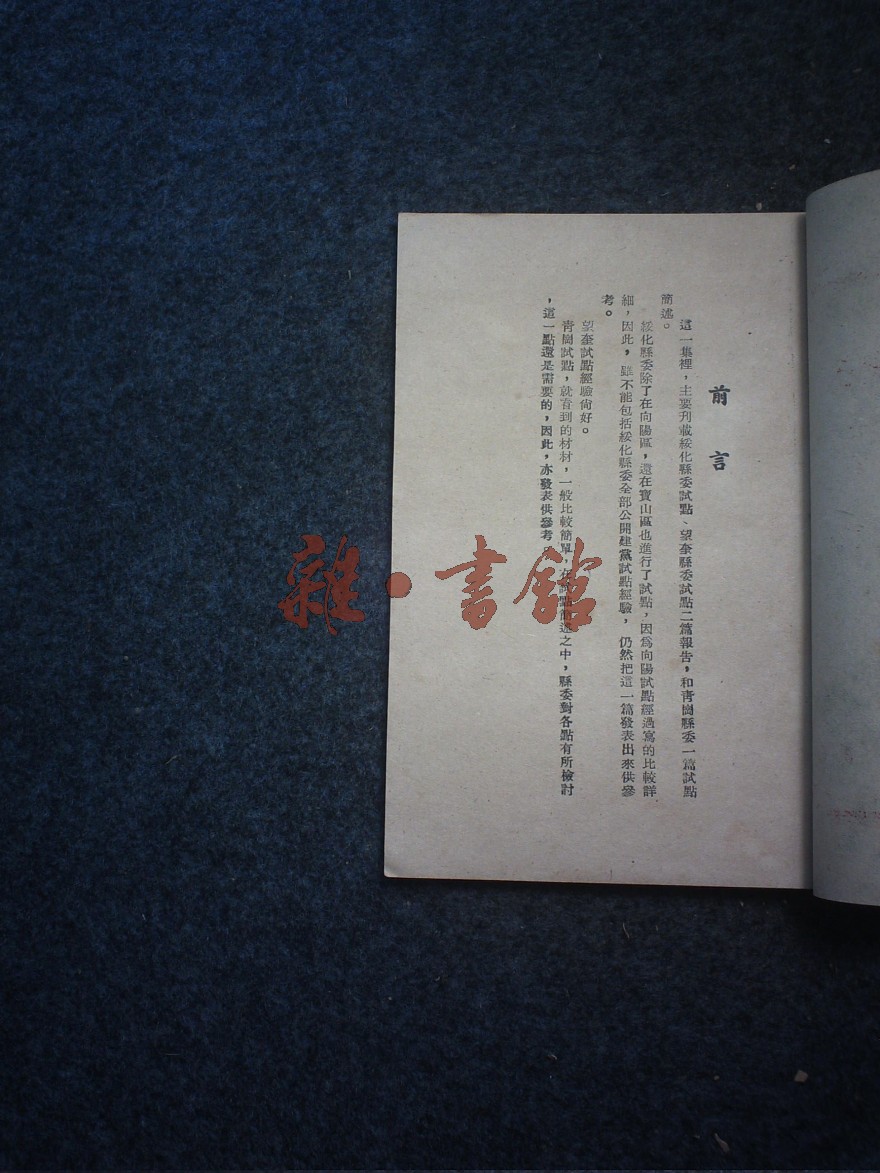 前言
這一集裡，主要刋載綏化縣委試點、望奎縣委試點二篇報告，和青崗縣委一篇試點
簡述。
綏化縣委除了在向陽區，還在寶山區也進行了試點，因爲向陽試點經過寫的比較詳
細，因此，雖不能包括綏化縣委全部公開建黨試點經驗，仍然把這一篇發表出來供參
考。
望奎試點經驗尙好。
青崗試點，就看到的材材，一般比較簡單，在試點簡述之中，縣委對各點有所檢討
，這一點還是需要的，因此，亦發表供參考
雜·書館